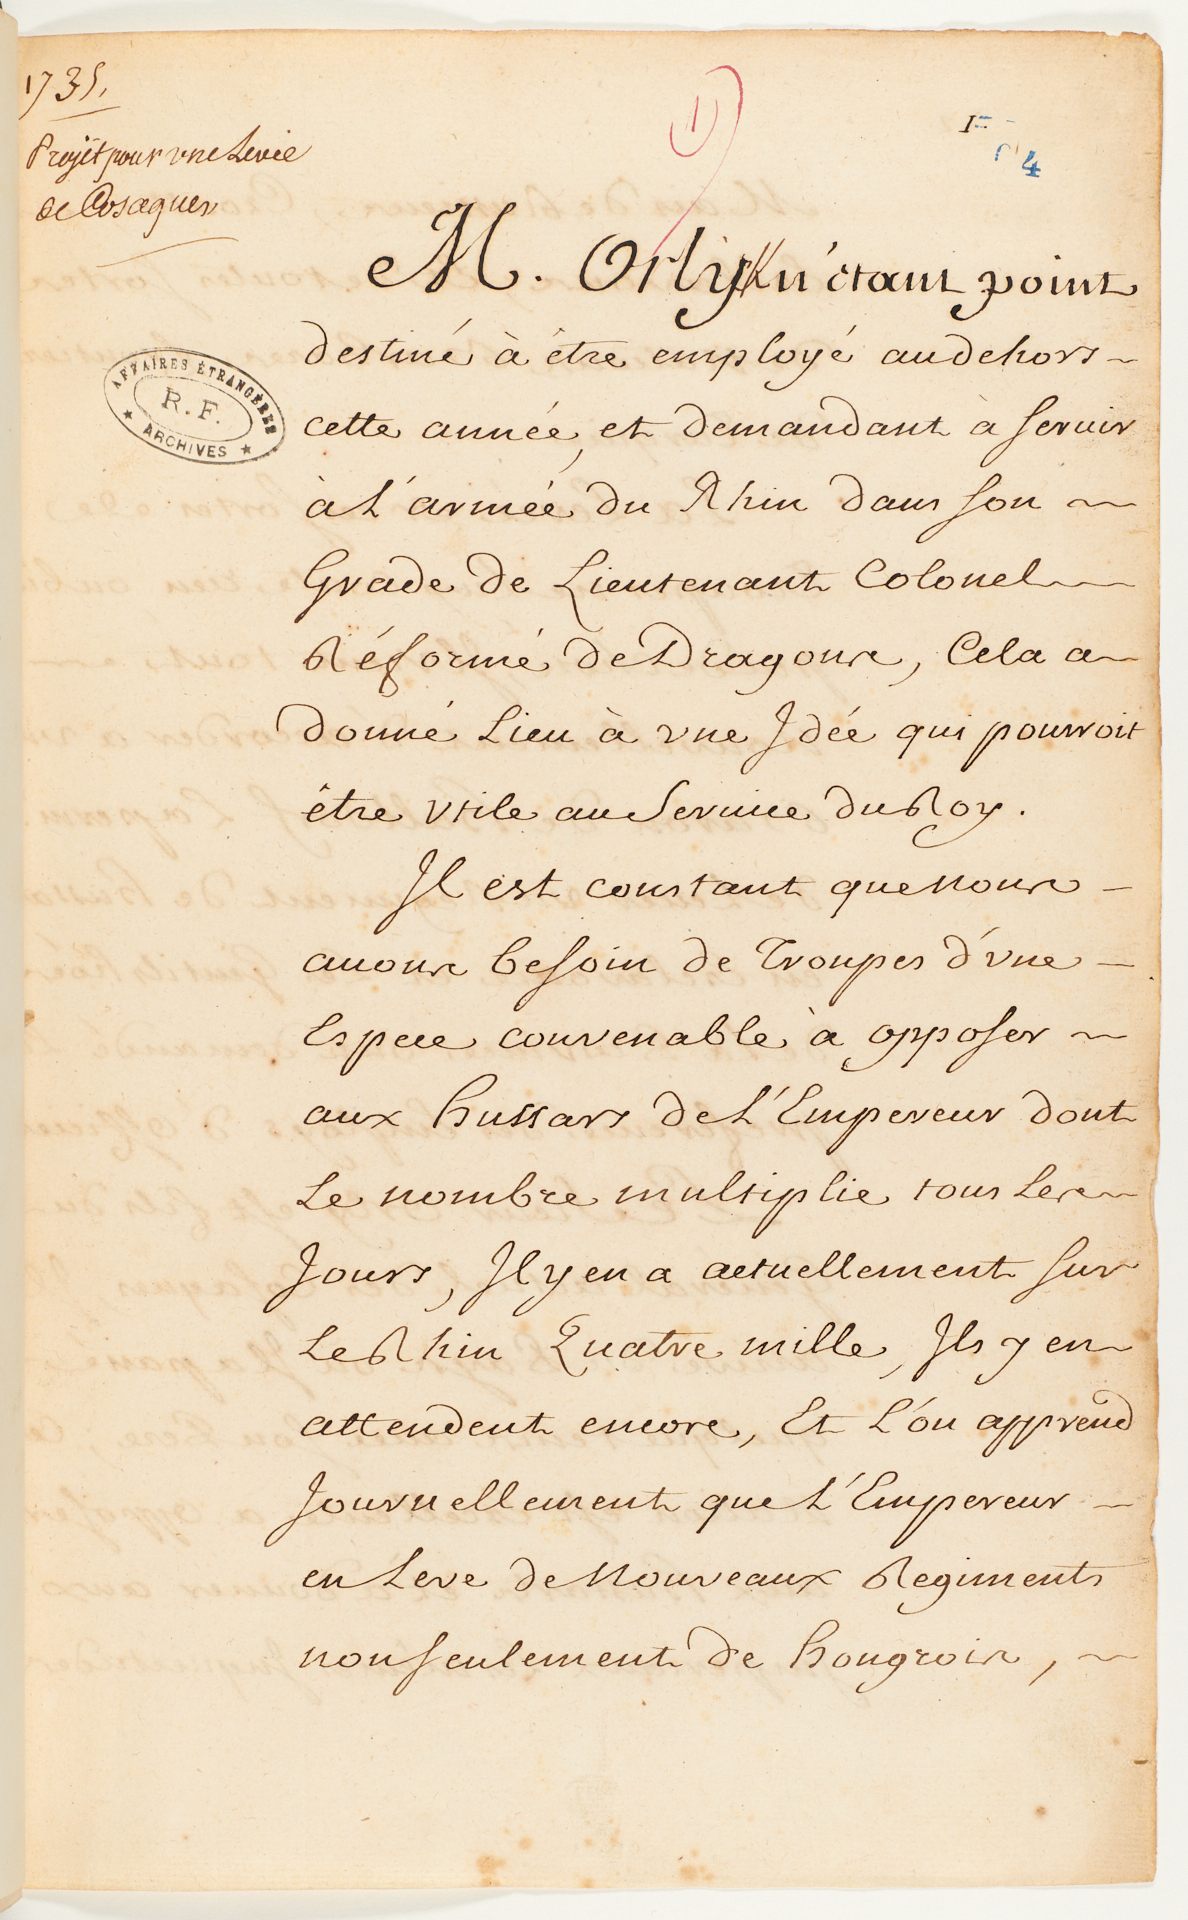 1735.
Projet pour vne Levée
de Cosaques
1
1
4
M. Orlyk n'étant point
destiné à être employé audehors
cette année, et demandant à servir
à L'armée du Rhin dans son
Grade de Lieutenant Colonel
Réformé de Dragons, Cela a
donné Lieu à vne Idée qui pourroit
être vtile au Service du Roy.
Il est constant que nous
auons besoin de Troupes d'vne
Espece convenable à opposer
aux hussars de L'Empereur dont
Le nombre multiplie tous Les
Jours, Il y en a actuellement sur
Le Rhin Quatre mille, Ils y en
attendent encore, Et L'on apprend
Journellement que L'Empereur
en Leve de Nouveaux Regiments
non seulement de hongrois,
AFFAIRES ÉTRANGÈRES
R. F.
★ ARCHIVES ★